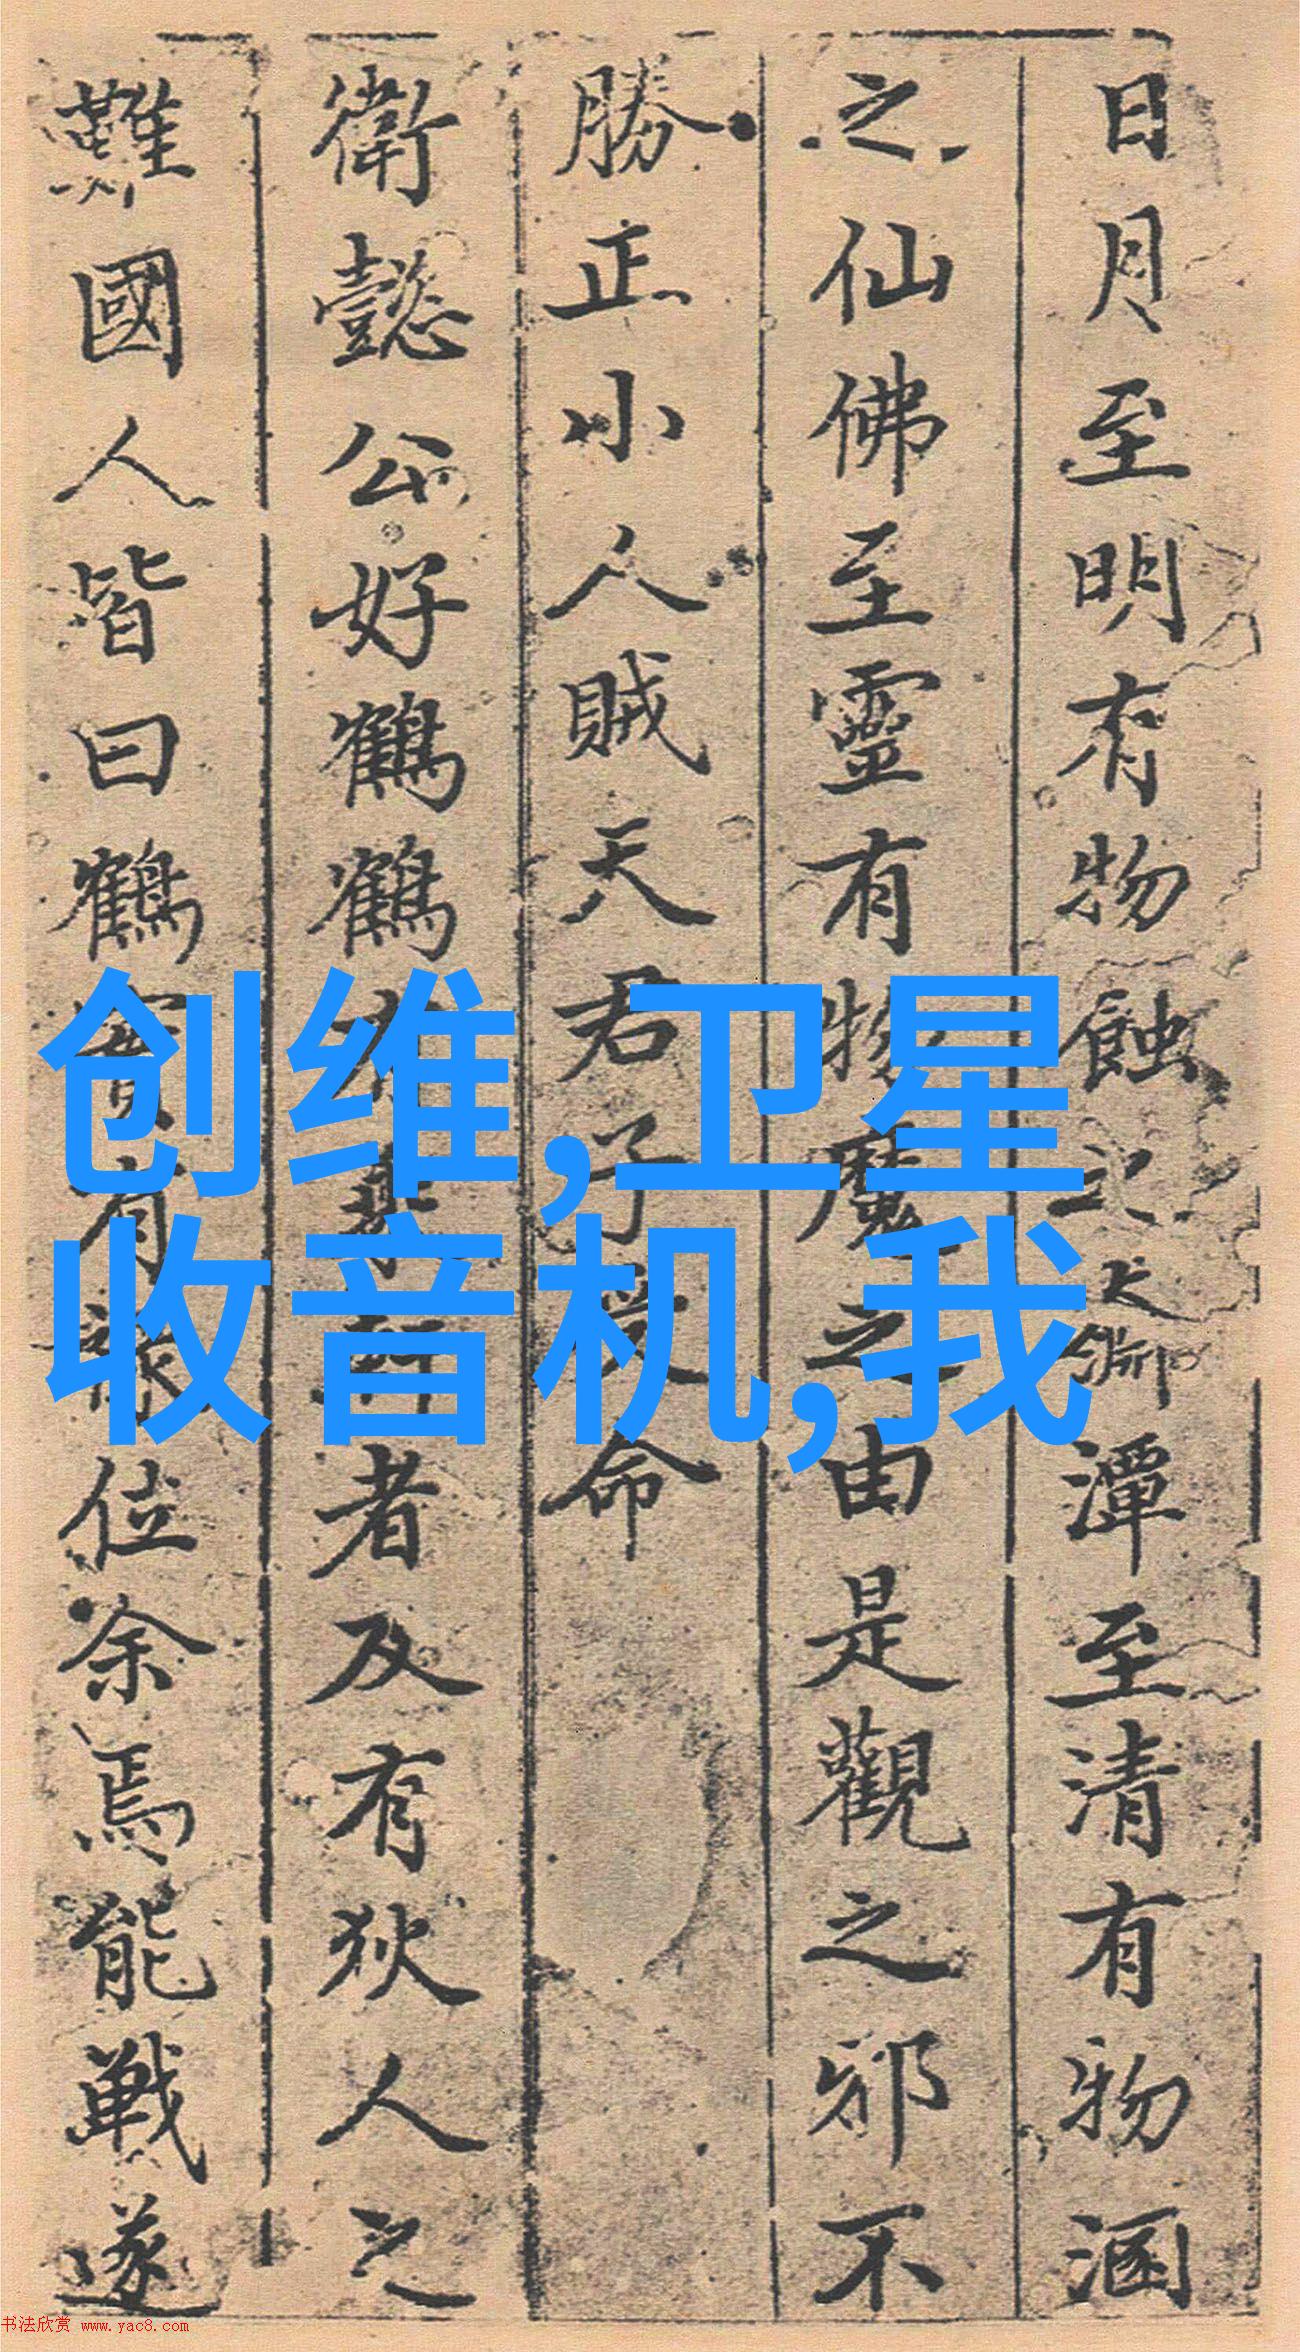 日月至明有物蝕之大淵潭至清有物涵
之仙佛至靈有物魔之由是觀之邪不
勝正小人賊天君子受命
衛懿公好鶴鶴有乘軒者及有狄人之
難國人皆曰鶴實有祿位余焉能戰遂
创维,卫星
收音机,我
书法欣赏 www.yac8.com